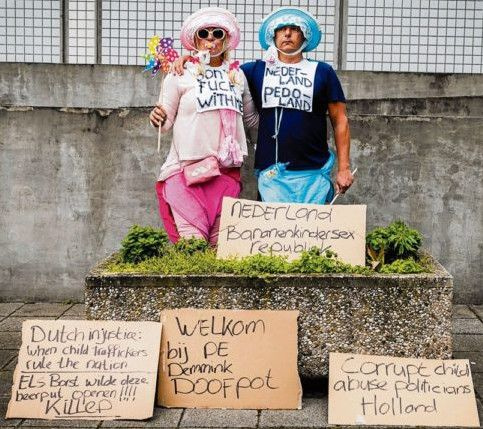 DON'T
FUCK
WITH
NEDER-
LAND
PEDO-
LAND
NEDERLAND
Bananenkindersex
republiek
Dutch injustice:
when child traffickers
rule the nation
ELS Borst wilde deze
beerput openen!!!!
KILLED
WELKOM
bij DE
Demmink
DOOFPOT
Corrupt child
abuse politicians
Holland